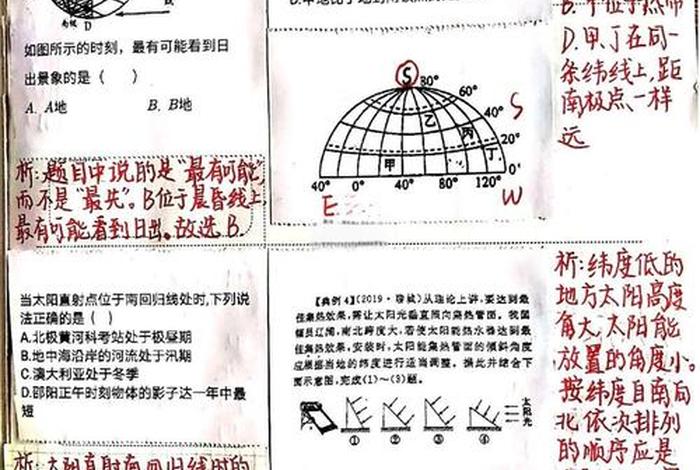 南极 D
如图所示的时刻，最有可能看到日
出景象的是（ ）
A. A地 B. B地
析:题目中说的是“最有可能”
而不是“最先”。B位于晨昏线上,
最有可能看到日出。故选B.
S 80°
60°
40° S
20°
0°
乙
丙
甲
丁
40° 0° 40° 80° 120°
E W
D.甲、丁在同一
条纬线上,距
南极点一样
远
当太阳直射点位于南回归线处时,下列说
法正确的是（ ）
A.北极黄河科考站处于极昼期
B.地中海沿岸的河流处于汛期
C.澳大利亚处于冬季
D.邵阳正午时刻物体的影子达一年中最
短
【典例4】(2019·聊城)从理论上讲,要达到最
佳集热效果,需让太阳光垂直照向集热管面。我国
幅员辽阔,南北跨度大,若使太阳能热水器达到最
佳集热效果,安装时,太阳能集热管面的倾斜角度
应根据当地的纬度进行适当调整。据此并结合下
面示意图,完成(1)～(3)题。
太阳光
① ② ③ ④
析:纬度低的
地方太阳高度
角大,太阳能
放置的角度小。
按纬度自南向
北依次排列
的顺序应是
析:太阳直射南回归线时的